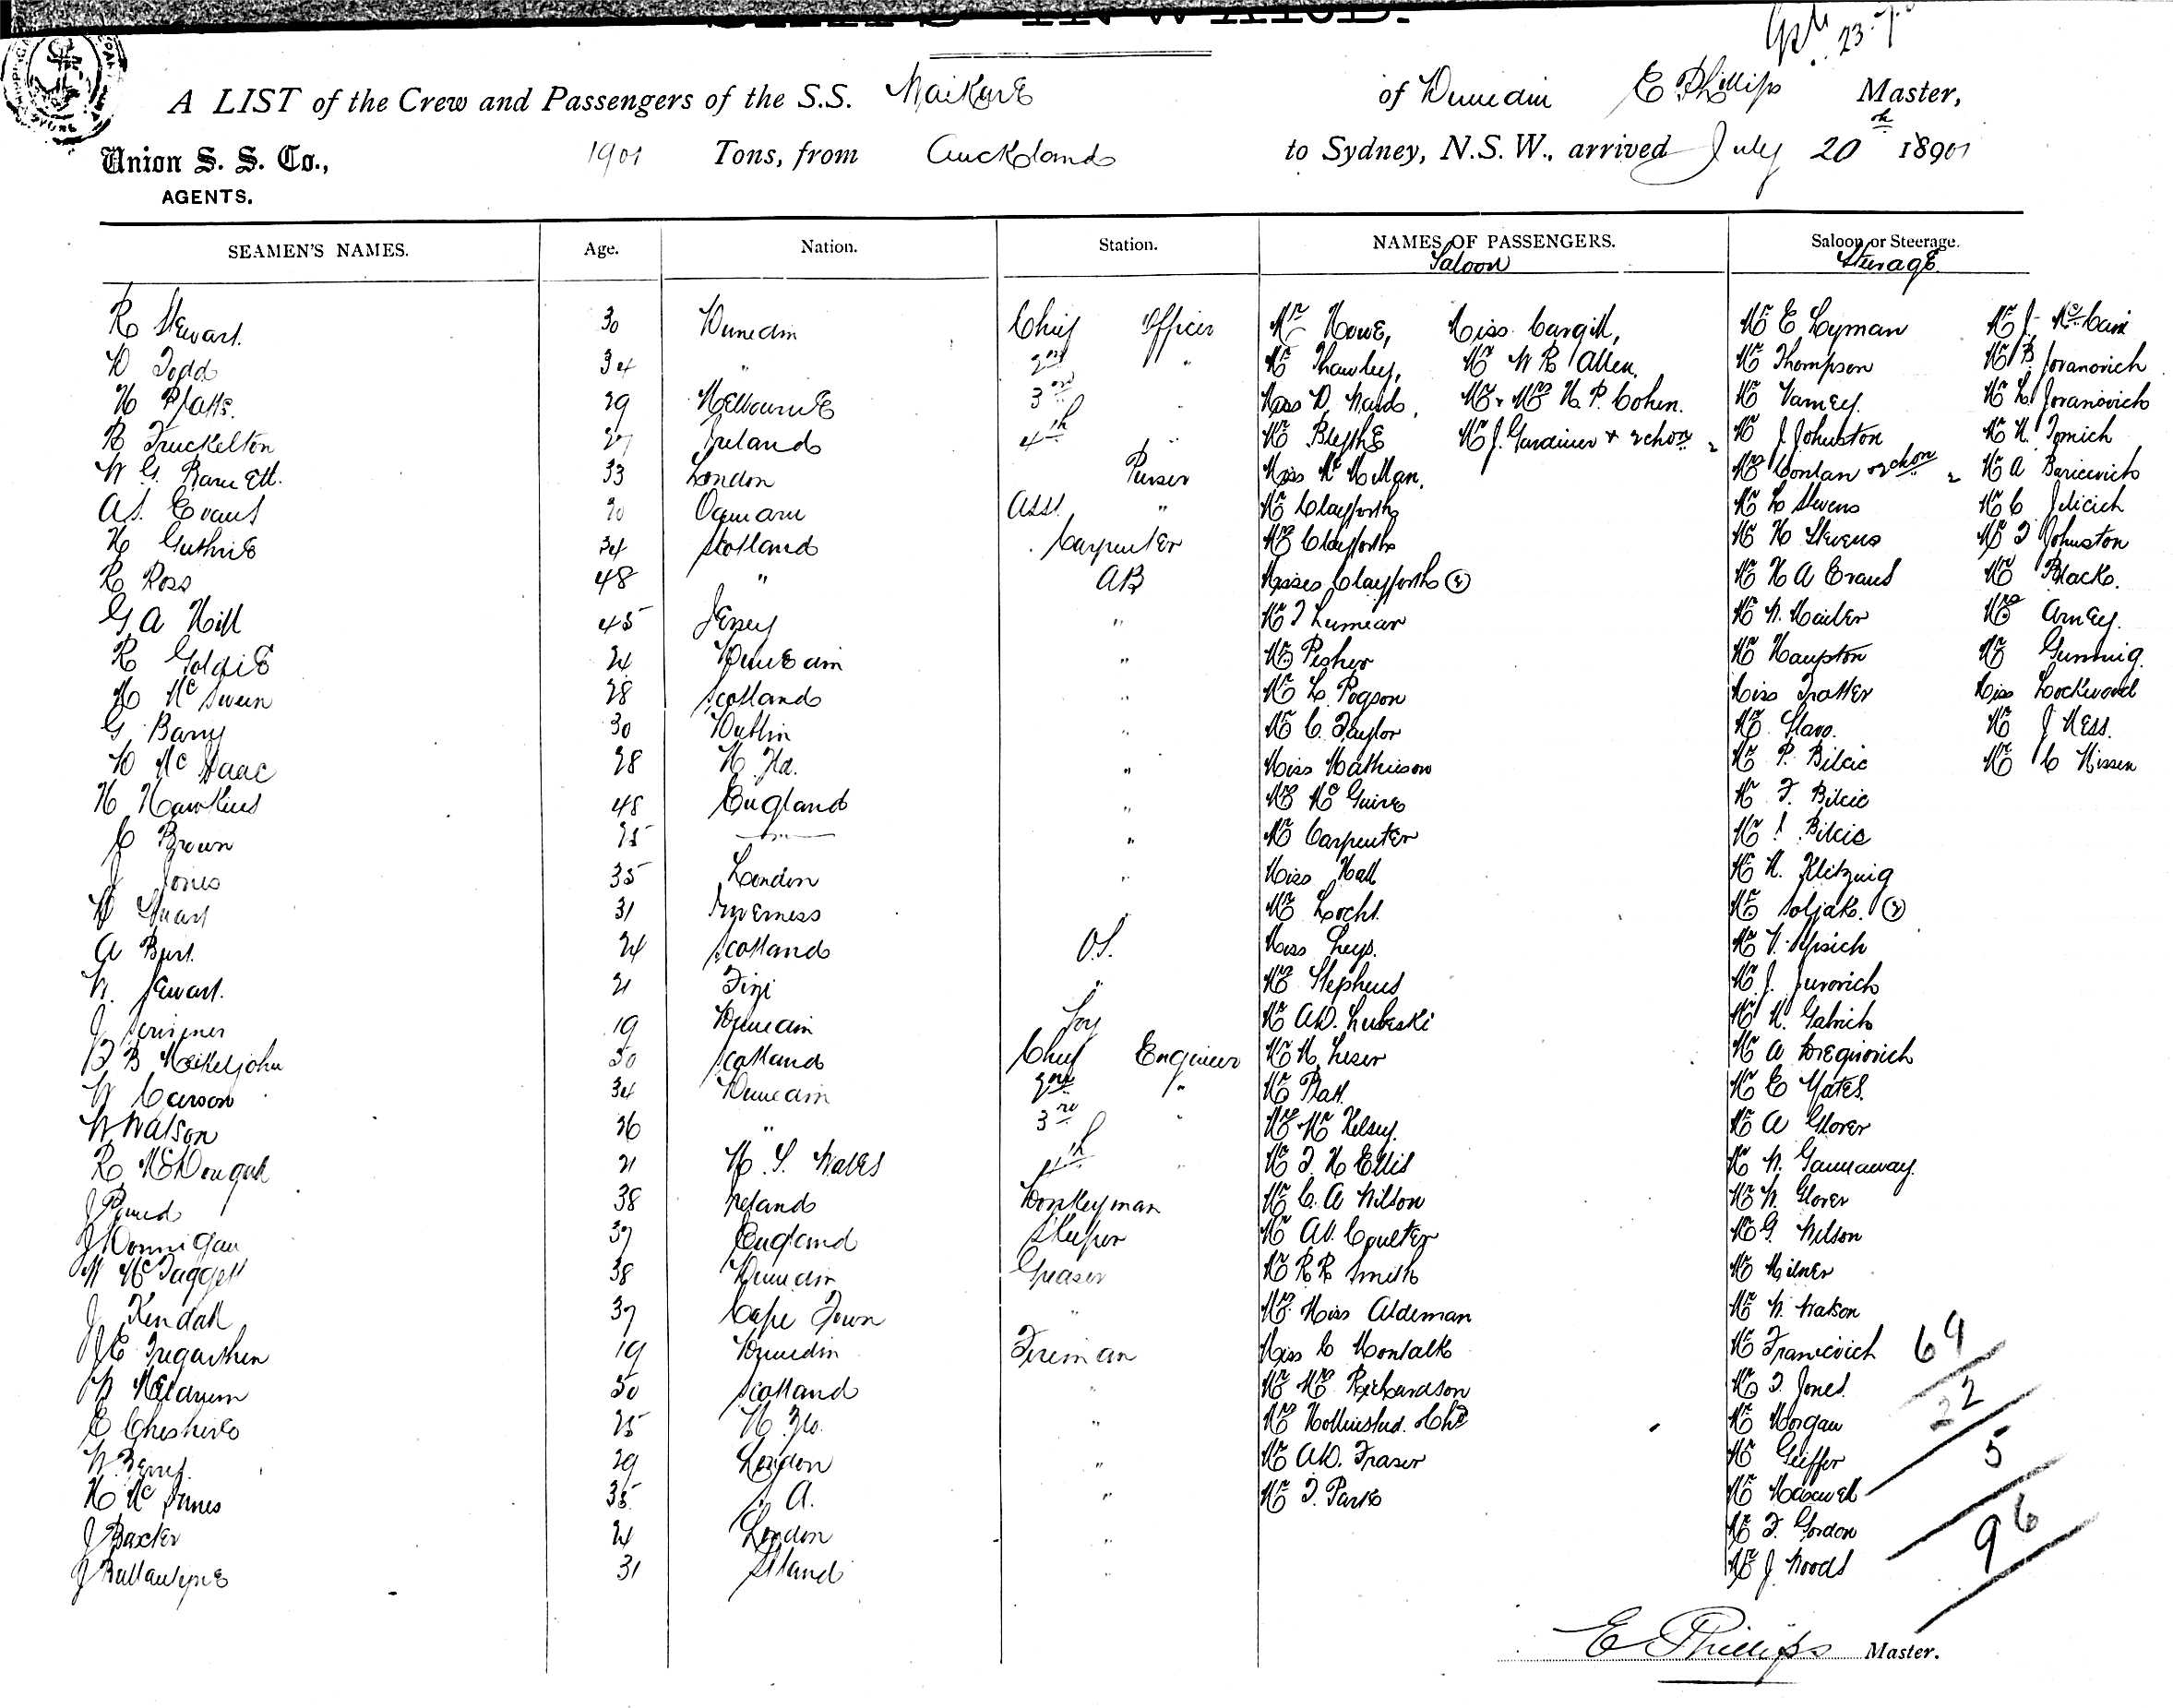 SHIPS INWARD.
23
A LIST of the Crew and Passengers of the S.S. Waikare of Dunedin E Phillips Master,
Union S. S. Co., 1901 Tons, from Auckland to Sydney, N.S.W., arrived July 20th 1901
AGENTS.
SEAMEN'S NAMES. Age. Nation. Station. NAMES OF PASSENGERS. Saloon or Steerage.
Saloon Steerage
R Stewart. 30 Dunedin Chief Officer Mr Howe, Miss Cargill, Mr E Lyman Mr J. McCain
D Todd 34 " 2nd " Mr Thawley, Mr W R Allen. Mr Thompson Mr B Jovanovich
H Platts. 29 Melbourne 3rd " Miss D Nalds, Mr & Mrs H. P. Cohen. Mr Varney. Mr L Jovanovich
R Truckelton 27 Ireland 4th " Mr Blythe Mr J. Gardiner & 2 chdn 2 Mr J. Johnston Mr N. Tomich
W G. Barnett. 33 London Purser Miss McMillan. Mrs Conlan & 2 chdn 2 Mr A Baricevich
A.S. Evans 20 Oamaru Asst. " Mr Clayforth Mr L Stevens Mr C Jelicich
H Guthrie 34 Scotland Carpenter Mrs Clayforth Mr H Stevens Mr T Johnston
R Ross 48 " AB Misses Clayforth (2) Mr H A Evans Mr Black.
G A Hill 45 Jersey " Mr J Lumear Mrs Arney.
R Goldie 24 Dunedin " Mr Pesher Mr Haupton Mr Gunning.
McSween 28 Scotland " Mr L. Pogson Miss Trotter Miss Lockwood
G. Barry 30 Dublin " Mr C. Taylor Mr Slavo. Mr J Hess.
D McIsaac 28 N. Zd. " Miss Mathieson Mr P. Bilcic Mr C Nissen
H Hawkins 48 England " Mrs McGuire Mr F. Bilcic
Brown 25 " " Mr Carpenter Mr I. Bilcic
J Jones 35 London " Miss Hall Mr N. Klitzing
D Stuart 31 Inverness " Mr Locht. Mr Soljak. (2)
A Burt. 24 Scotland O.S. Miss Leys.
W. Stewart. 21 Fiji " Mrs Stephens Mr J. Jurovich
J Scrimner 19 Dunedin Boy Mr A.D. Lubeski Mr N. Gabrich
B Meikeljohn 50 Scotland Chief Engineer Mr H. Leser Mr A Dreginovich
W Carson 34 Dunedin 2nd " Mr Ball. Mr E Yates.
W Watson 26 " 3rd " Mr Mrs Kelsey. Mr A Glover
R McDougall 21 N. S. Wales 4th " Mr T. H Ellis Mr W. Gannaway.
J 38 Ireland Donkeyman Mr C. A Wilson Mr W. Glover
J Donnigan 37 England S'keeper Mr A.D. Coulter Mr G. Wilson
McTaggett 38 Dunedin Greaser Mr R R Smith Mr Milner
J Kendall 37 Cape Town " Mrs. Miss Aldeman Mr W. Watson
J E Tregarthen 19 Dunedin Fireman Miss C Montalk Mr Franicevich 69
Meldrum 50 Scotland " Mr Mrs Richardson Mr T. Jones. 22
E Cheshire 25 N. Zd. " Mrs Hollinshed. & Chd Mr Morgan 5
W. 29 London " Mr A.D. Fraser Mr Geiffer
H McInnes 35 S. A. " Mr T. Park Mr Maxwell 96
J Baxter 24 London " Mr T. Gordon
J Ballantyne 31 " Mr J. Woods
E Phillips Master.